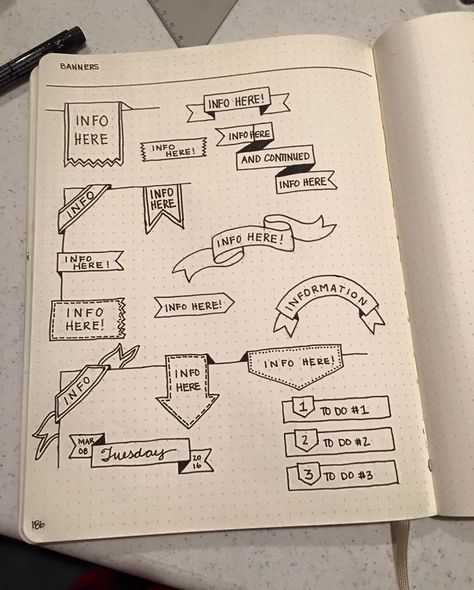 BANNERS
INFO
HERE
INFO HERE!
INFO
HERE!
INFO HERE
AND CONTINUED
INFO HERE
INFO
INFO
HERE
INFO
HERE!
INFO HERE!
INFO
HERE!
INFO HERE!
INFORMATION
INFO
INFO
HERE
INFO HERE!
1 TO DO #1
2 TO DO #2
3 TO DO #3
MAR
08
Tuesday
20
16
186